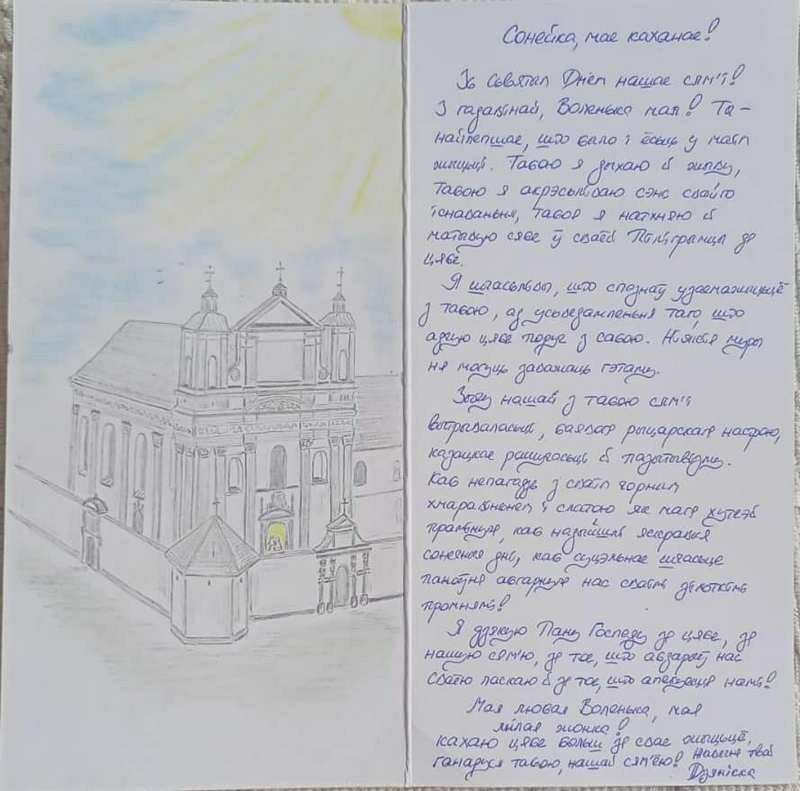 Сонейка, мае каханае!
Зь сьвятам Днём нашае сям'і!
З гадавінай, Воленька мая! Ты –
найлепшае, што было і ёсьць у маім
жыцьці. Табою я дыхаю й жыву,
табою я акрэсьліваю сэнс свайго
існаваньня, табой я натхняю й
матывую сябе ў сваёй Пілігрымцы да
цябе.
Я шчасьлівы, што спазнаў узаемажыцьцё
з табою, ад усьведамленьня таго, што
адчую цябе подуч з сабою. Ніякія муры
ня могуць заважаць гэтаму.
Зычу нашай з табою сям'і
вытрываласьці, баявога рыцарскага настрою,
казацкае рашучасьці й пазытывізму.
Каб непагадзь з сваім чорным
хмараўненем і слатою як мага хутчэй
прамінула, каб надыйшлі яскравыя
сонечныя дні, каб суцэльнае шчасьце
паноўна авгарнула нас сваімі дзівоткімі
промнямі!
Я дзякую Пану Госпаду за цябе, за
нашую сям'ю, за тое, што абдарыў нас
сваёю ласкаю й за тое, што апякуецца намі!
Мая любая Воленька, мая
мілая жонка!
кахаю цябе больш за сваё жыцьцё,
ганаруся табою, нашай сям'ёю! Навечна твой
Дзяніска